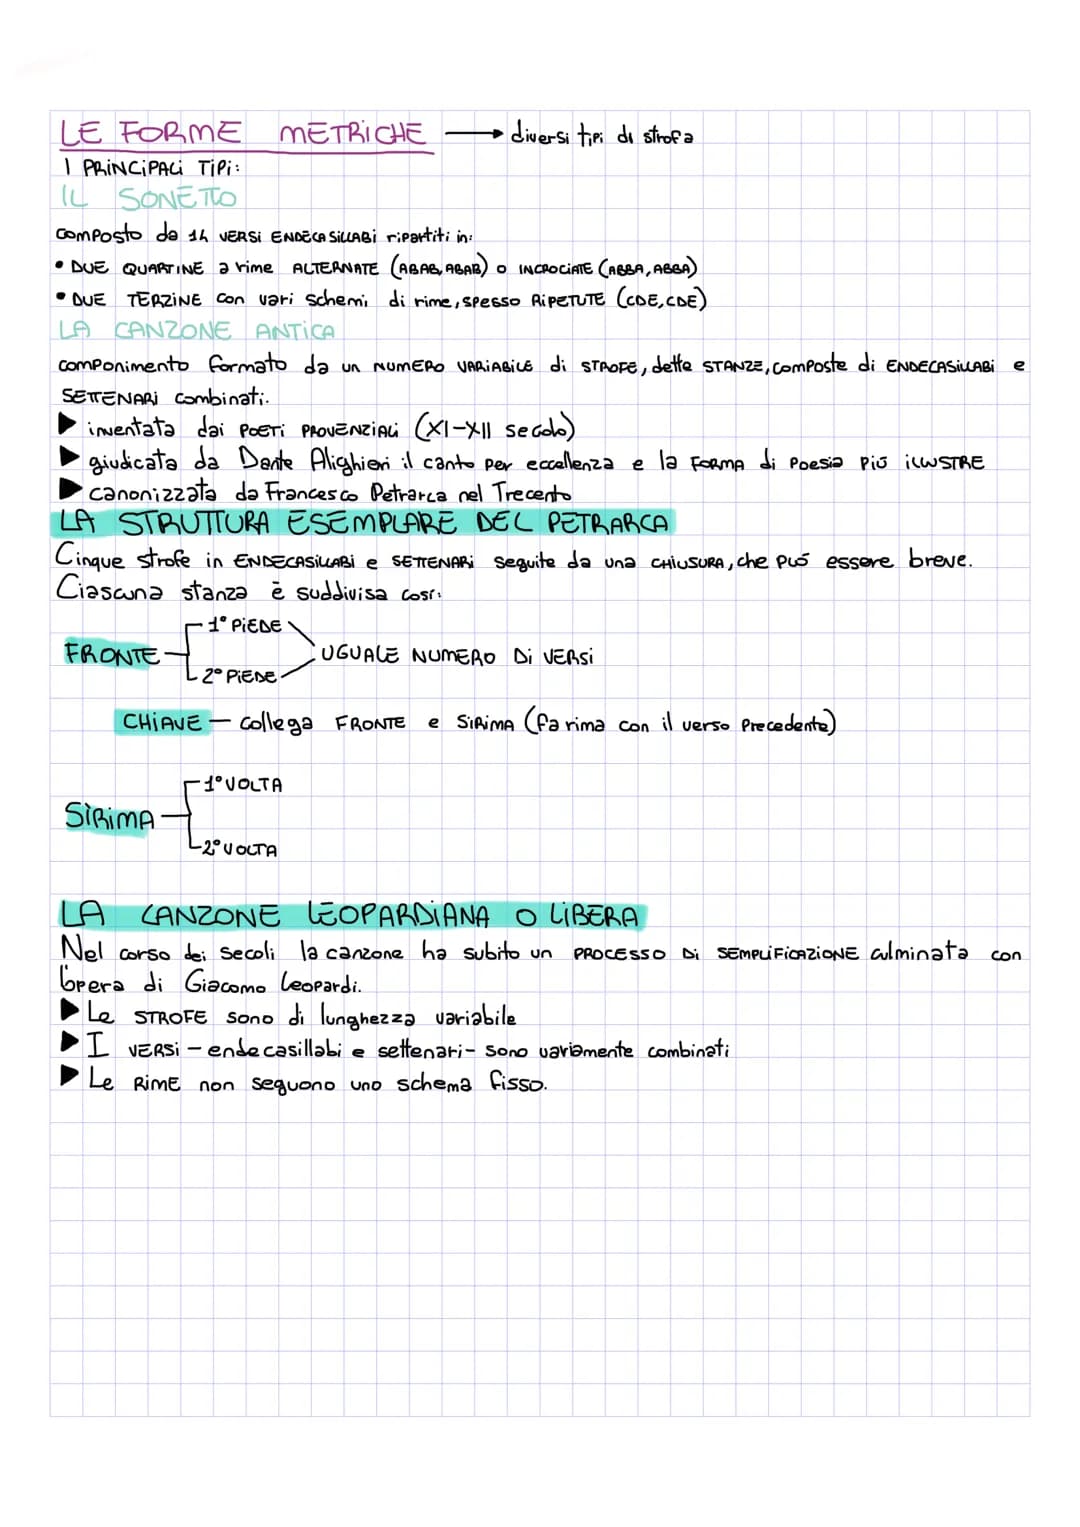 LE FORME METRICHE → diversi tipi di strofa
I PRINCIPALI TIPI:
IL SONETTO
composto da 14 VERSI ENDECASILLABI ripartiti in:
• DUE QUARTINE a rime ALTERNATE (ABAB, ABAB) o INCROCIATE (ABBA, ABBA)
• DUE TERZINE con vari schemi di rime, spesso RIPETUTE (CDE, CDE)
LA CANZONE ANTICA
componimento formato da un NUMERO VARIABILE di STROFE, dette STANZE, composte di ENDECASILLABI e
SETTENARI combinati.
▶ inventata dai POETI PROVENZIALI (XI-XII secolo)
▶ giudicata da Dante Alighieri il canto per eccellenza e la FORMA di poesia più ILLUSTRE
▶ canonizzata da Francesco Petrarca nel Trecento
LA STRUTTURA ESEMPLARE DEL PETRARCA
Cinque strofe in ENDECASILLABI e SETTENARI seguite da una CHIUSURA, che può essere breve.
Ciascuna stanza è suddivisa così:
1° PIEDE
FRONTE UGUALE NUMERO DI VERSI
2° PIEDE
CHIAVE — collega FRONTE e SIRIMA (fa rima con il verso precedente)
1° VOLTA
SÌRIMA
2° VOLTA
LA CANZONE LEOPARDIANA O LIBERA
Nel corso dei secoli la canzone ha subito un PROCESSO DI SEMPLIFICAZIONE culminata con
l'opera di Giacomo Leopardi.
▶ Le STROFE sono di lunghezza variabile
▶ I VERSI - endecasillabi e settenari - sono variamente combinati
▶ Le RIME non seguono uno schema fisso.